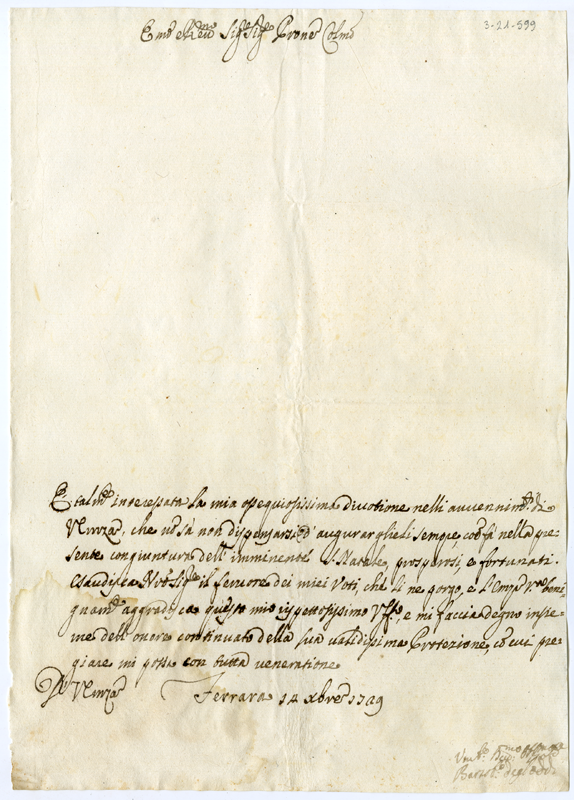 3-21-599
Emo e Rmo Sige Sige Prone Colmo
È talmte interessata la mia ossequiosissima divotione nelli avvenimti di
V. Emza, che nō sà non dispensarsi d' augurarglieli sempre, cō fà nella pre-
sente congiuntura dell' imminente S. Natale, prosperosi, e fortunati.
Esaudisca Nro Sige il fervore dei miei Voti, che li ne porgo, e l'Emza Vra beni
gnamte aggradisca questo mio rispettosissimo Uffo, e mi faccia degno insie-
me dell' onore continuato della sua validissima Protezione, cō cui pre-
giare mi possa con tutta veneratione
Di V. Emza Ferrara 14 Xbre 1729